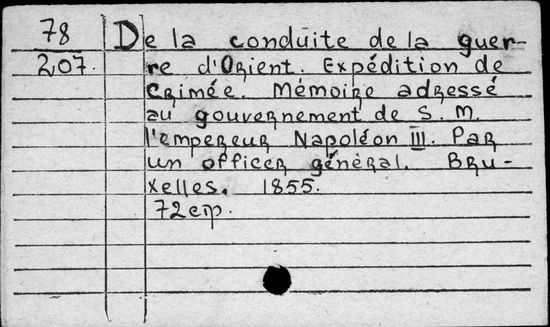 78 De la conduite de la guer-
207. re d'Orient. Expédition de
Crimée. Mémoire adressé
au gouvernement de S. M.
l'empereur Napoléon III. Par
un officer général. Bru-
xelles. 1855.
72 стр.